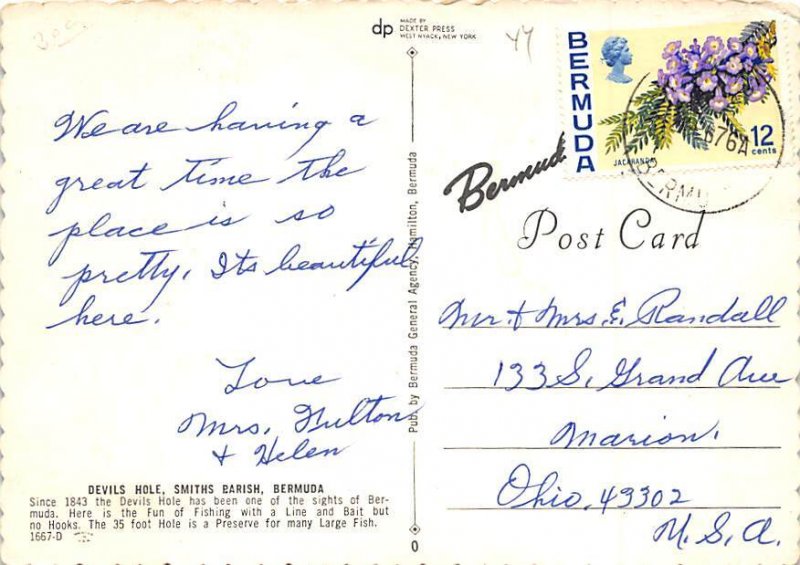 300
dp
MADE BY
DEXTER PRESS
WEST NYACK, NEW YORK
BERMUDA
JACARANDA
12
cents
676A
BERMU
Bermud
Post Card
We are having a
great time the
place is so
pretty. Its beautiful
here.
Love
Mrs. Fulton
& Helen
Pub. by Bermuda General Agency, Hamilton, Bermuda
Mr. & Mrs. E. Randall
133 S. Grand Ave
Marion.
Ohio. 43302
U. S. A.
DEVILS HOLE, SMITHS PARISH, BERMUDA
Since 1843 the Devils Hole has been one of the sights of Ber-
muda. Here is the Fun of Fishing with a Line and Bait but
no Hooks. The 35 foot Hole is a Preserve for many Large Fish.
1667-D
0